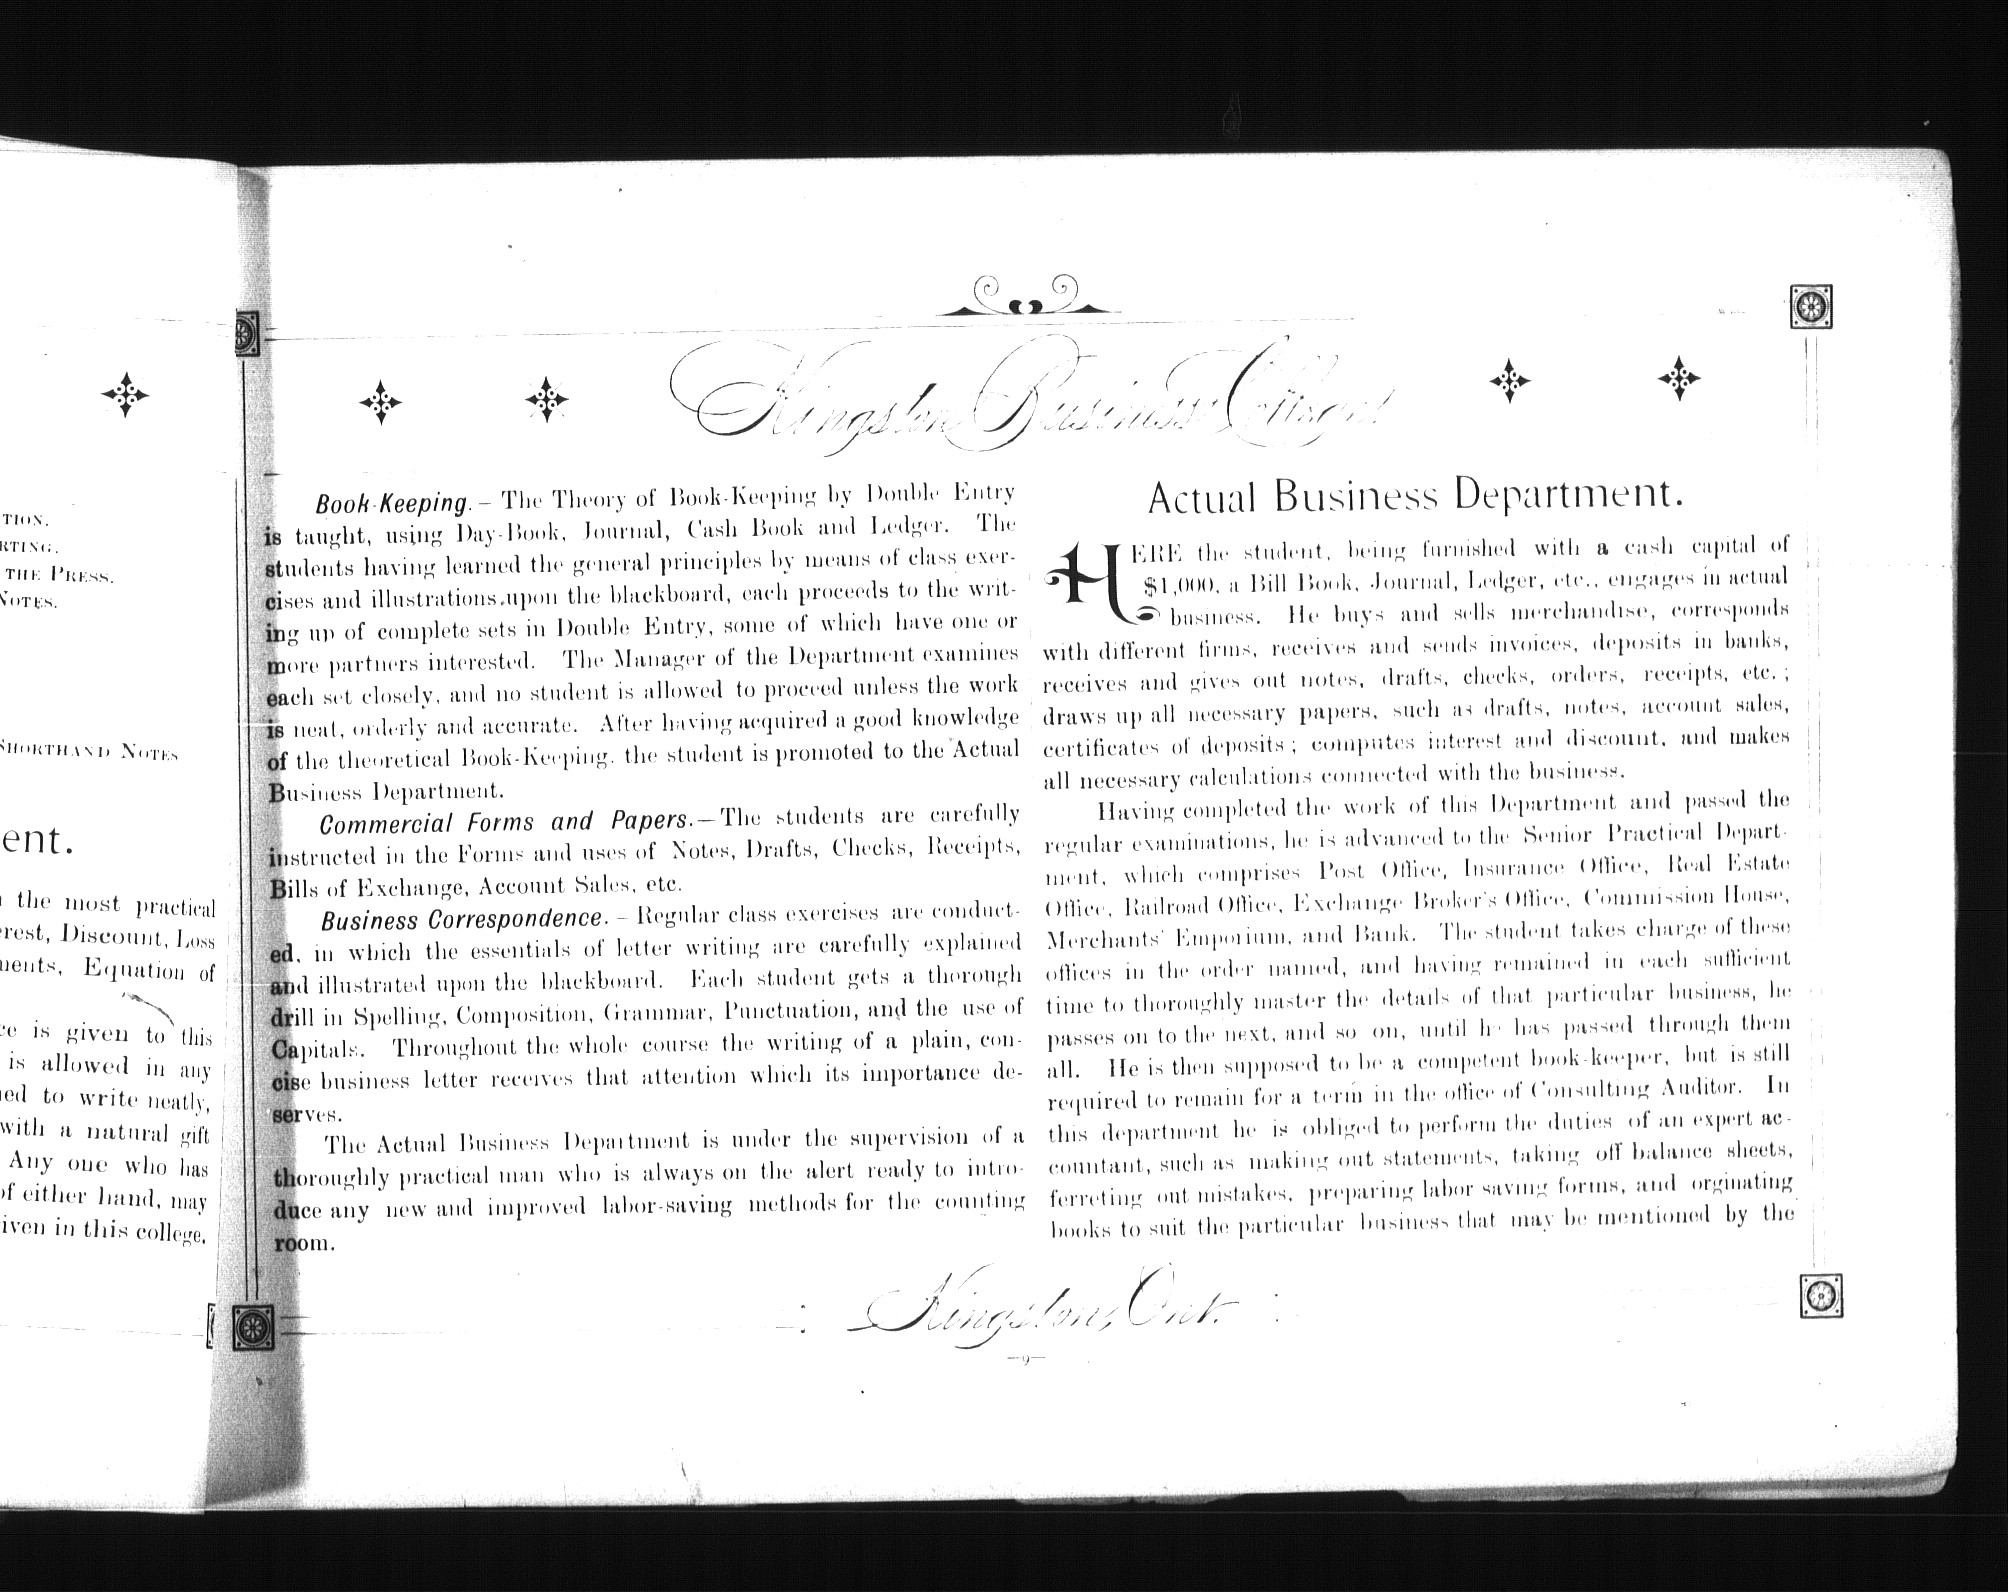 TION.
RTING.
THE PRESS.
NOTES.
SHORTHAND NOTES
ent.
the most practical
rest, Discount, Loss
ments, Equation of
ce is given to this
is allowed in any
ned to write neatly,
with a natural gift
Any one who has
of either hand, may
iven in this college.
Kingston Business College
Book-Keeping. – The Theory of Book-Keeping by Double Entry
is taught, using Day-Book, Journal, Cash Book and Ledger. The
students having learned the general principles by means of class exer-
cises and illustrations upon the blackboard, each proceeds to the writ-
ing up of complete sets in Double Entry, some of which have one or
more partners interested. The Manager of the Department examines
each set closely, and no student is allowed to proceed unless the work
is neat, orderly and accurate. After having acquired a good knowledge
of the theoretical Book-Keeping, the student is promoted to the Actual
Business Department.
Commercial Forms and Papers.—The students are carefully
instructed in the Forms and uses of Notes, Drafts, Checks, Receipts,
Bills of Exchange, Account Sales, etc.
Business Correspondence. – Regular class exercises are conduct-
ed, in which the essentials of letter writing are carefully explained
and illustrated upon the blackboard. Each student gets a thorough
drill in Spelling, Composition, Grammar, Punctuation, and the use of
Capitals. Throughout the whole course the writing of a plain, con-
cise business letter receives that attention which its importance de-
serves.
The Actual Business Department is under the supervision of a
thoroughly practical man who is always on the alert ready to intro-
duce any new and improved labor-saving methods for the counting
room.
Actual Business Department.
HERE the student, being furnished with a cash capital of
$1,000, a Bill Book, Journal, Ledger, etc., engages in actual
business. He buys and sells merchandise, corresponds
with different firms, receives and sends invoices, deposits in banks,
receives and gives out notes, drafts, checks, orders, receipts, etc. ;
draws up all necessary papers, such as drafts, notes, account sales,
certificates of deposits ; computes interest and discount, and makes
all necessary calculations connected with the business.
Having completed the work of this Department and passed the
regular examinations, he is advanced to the Senior Practical Depart-
ment, which comprises Post Office, Insurance Office, Real Estate
Office, Railroad Office, Exchange Broker's Office, Commission House,
Merchants' Emporium, and Bank. The student takes charge of these
offices in the order named, and having remained in each sufficient
time to thoroughly master the details of that particular business, he
passes on to the next, and so on, until he has passed through them
all. He is then supposed to be a competent book-keeper, but is still
required to remain for a term in the office of Consulting Auditor. In
this department he is obliged to perform the duties of an expert ac-
countant, such as making out statements, taking off balance sheets,
ferreting out mistakes, preparing labor saving forms, and orginating
books to suit the particular business that may be mentioned by the
Kingston, Ont.
—9—